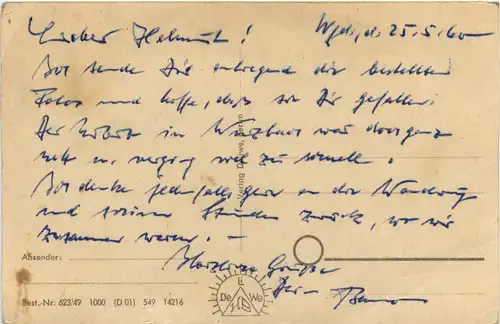 Lieber Helmut! Wgd., d. 25.5.60
Ich sende Dir anliegend die bestellten
Fotos und hoffe, daß sie Dir gefallen.
Der Urlaub in war doch ganz
nett u. verging viel zu schnell.
Ich denke jedenfalls gern an die Wanderung
und schönen Stunden zurück, wo wir
zusammen waren. –
Herzliche Grüße
Dein
Absender:
Verlag DeWe,
Li
De We
Best.-Nr. 623/49 1000 (D 01) 549 14216